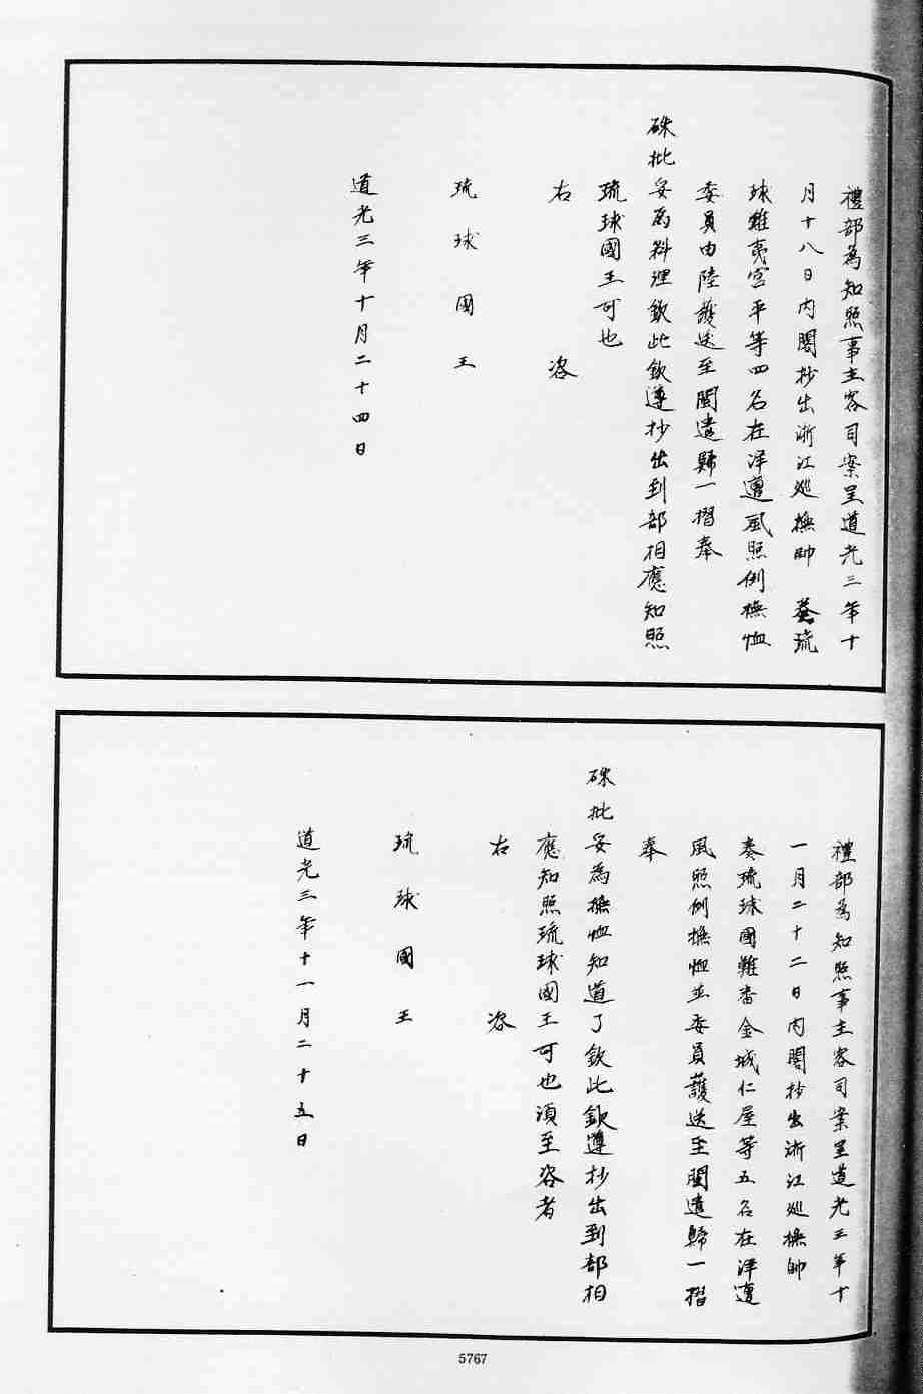 禮部為知照事主客司案呈道光三年十
月十八日內閣抄出浙江巡撫帥 奏琉
球難夷宮平等四名在洋遭風照例撫恤
委員由陸護送至閩遣歸一摺奉
硃批妥為料理欽此欽遵抄出到部相應知照
琉球國王可也
右咨
琉球國王
道光三年十月二十四日
禮部為知照事主客司案呈道光三年十
一月二十二日內閣抄出浙江巡撫帥
奏琉球國難番金城仁屋等五名在洋遭
風照例撫恤並委員護送至閩遣歸一摺
奉
硃批妥為撫恤知道了欽此欽遵抄出到部相
應知照琉球國王可也須至咨者
右咨
琉球國王
道光三年十一月二十五日
5767